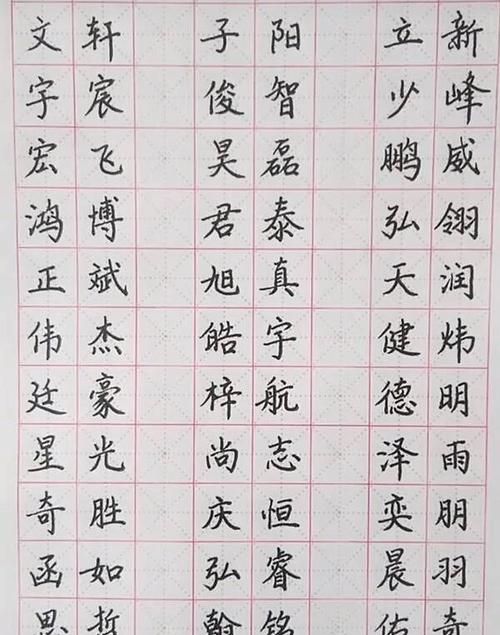 文轩 子阳 立新
宇宸 俊智 少峰
宏飞 昊磊 鹏威
鸿博 君泰 弘翎
正斌 旭真 天润
伟杰 皓宇 健炜
廷豪 梓航 德明
星光 尚志 泽雨
奇胜 庆恒 奕朋
函如 弘睿 晨羽
思哲 翰铭 佑奇